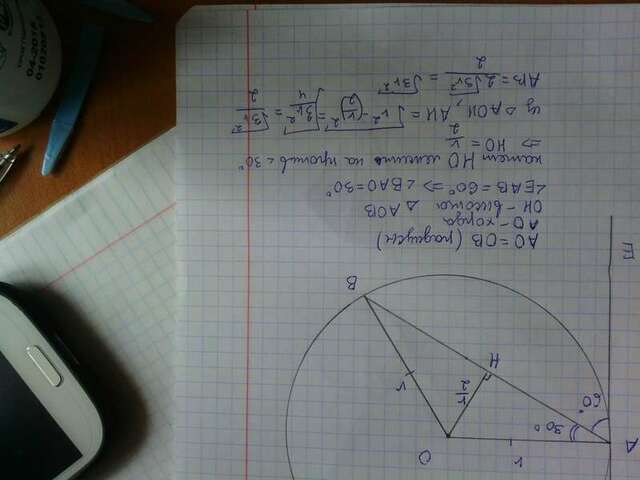 A
r
O
30°
60°
r/2
H
r
B
E
AO = OB (радиусы)
AB - хорда
OH - высота △ AOB
∠EAB = 60° ⇒ ∠BAO = 30°
катет HO лежит на против ∠30°
⇒ HO = r/2
из △ AOH, AH = √r² - (r/2)² = √3r²/4 = √3r²/2
AB = 2√3r²/2 = √3r²
04-2015